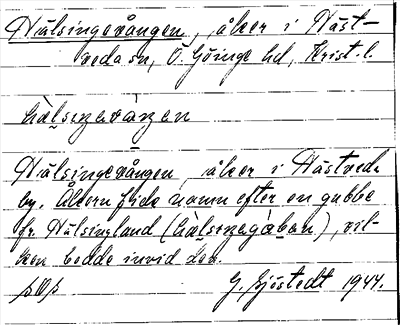 Hälsingevången, åker i Häst-
veda sn, Ö. Göinge hd, Krist. l.
hälsıŋevàŋen
Hälsingevången, åker i Hästveda
by. Åkern fick namn efter en gubbe
fr. Hälsingland (hälsıŋagàben), vil-
ken bodde invid den.
G. Sjöstedt 1944.